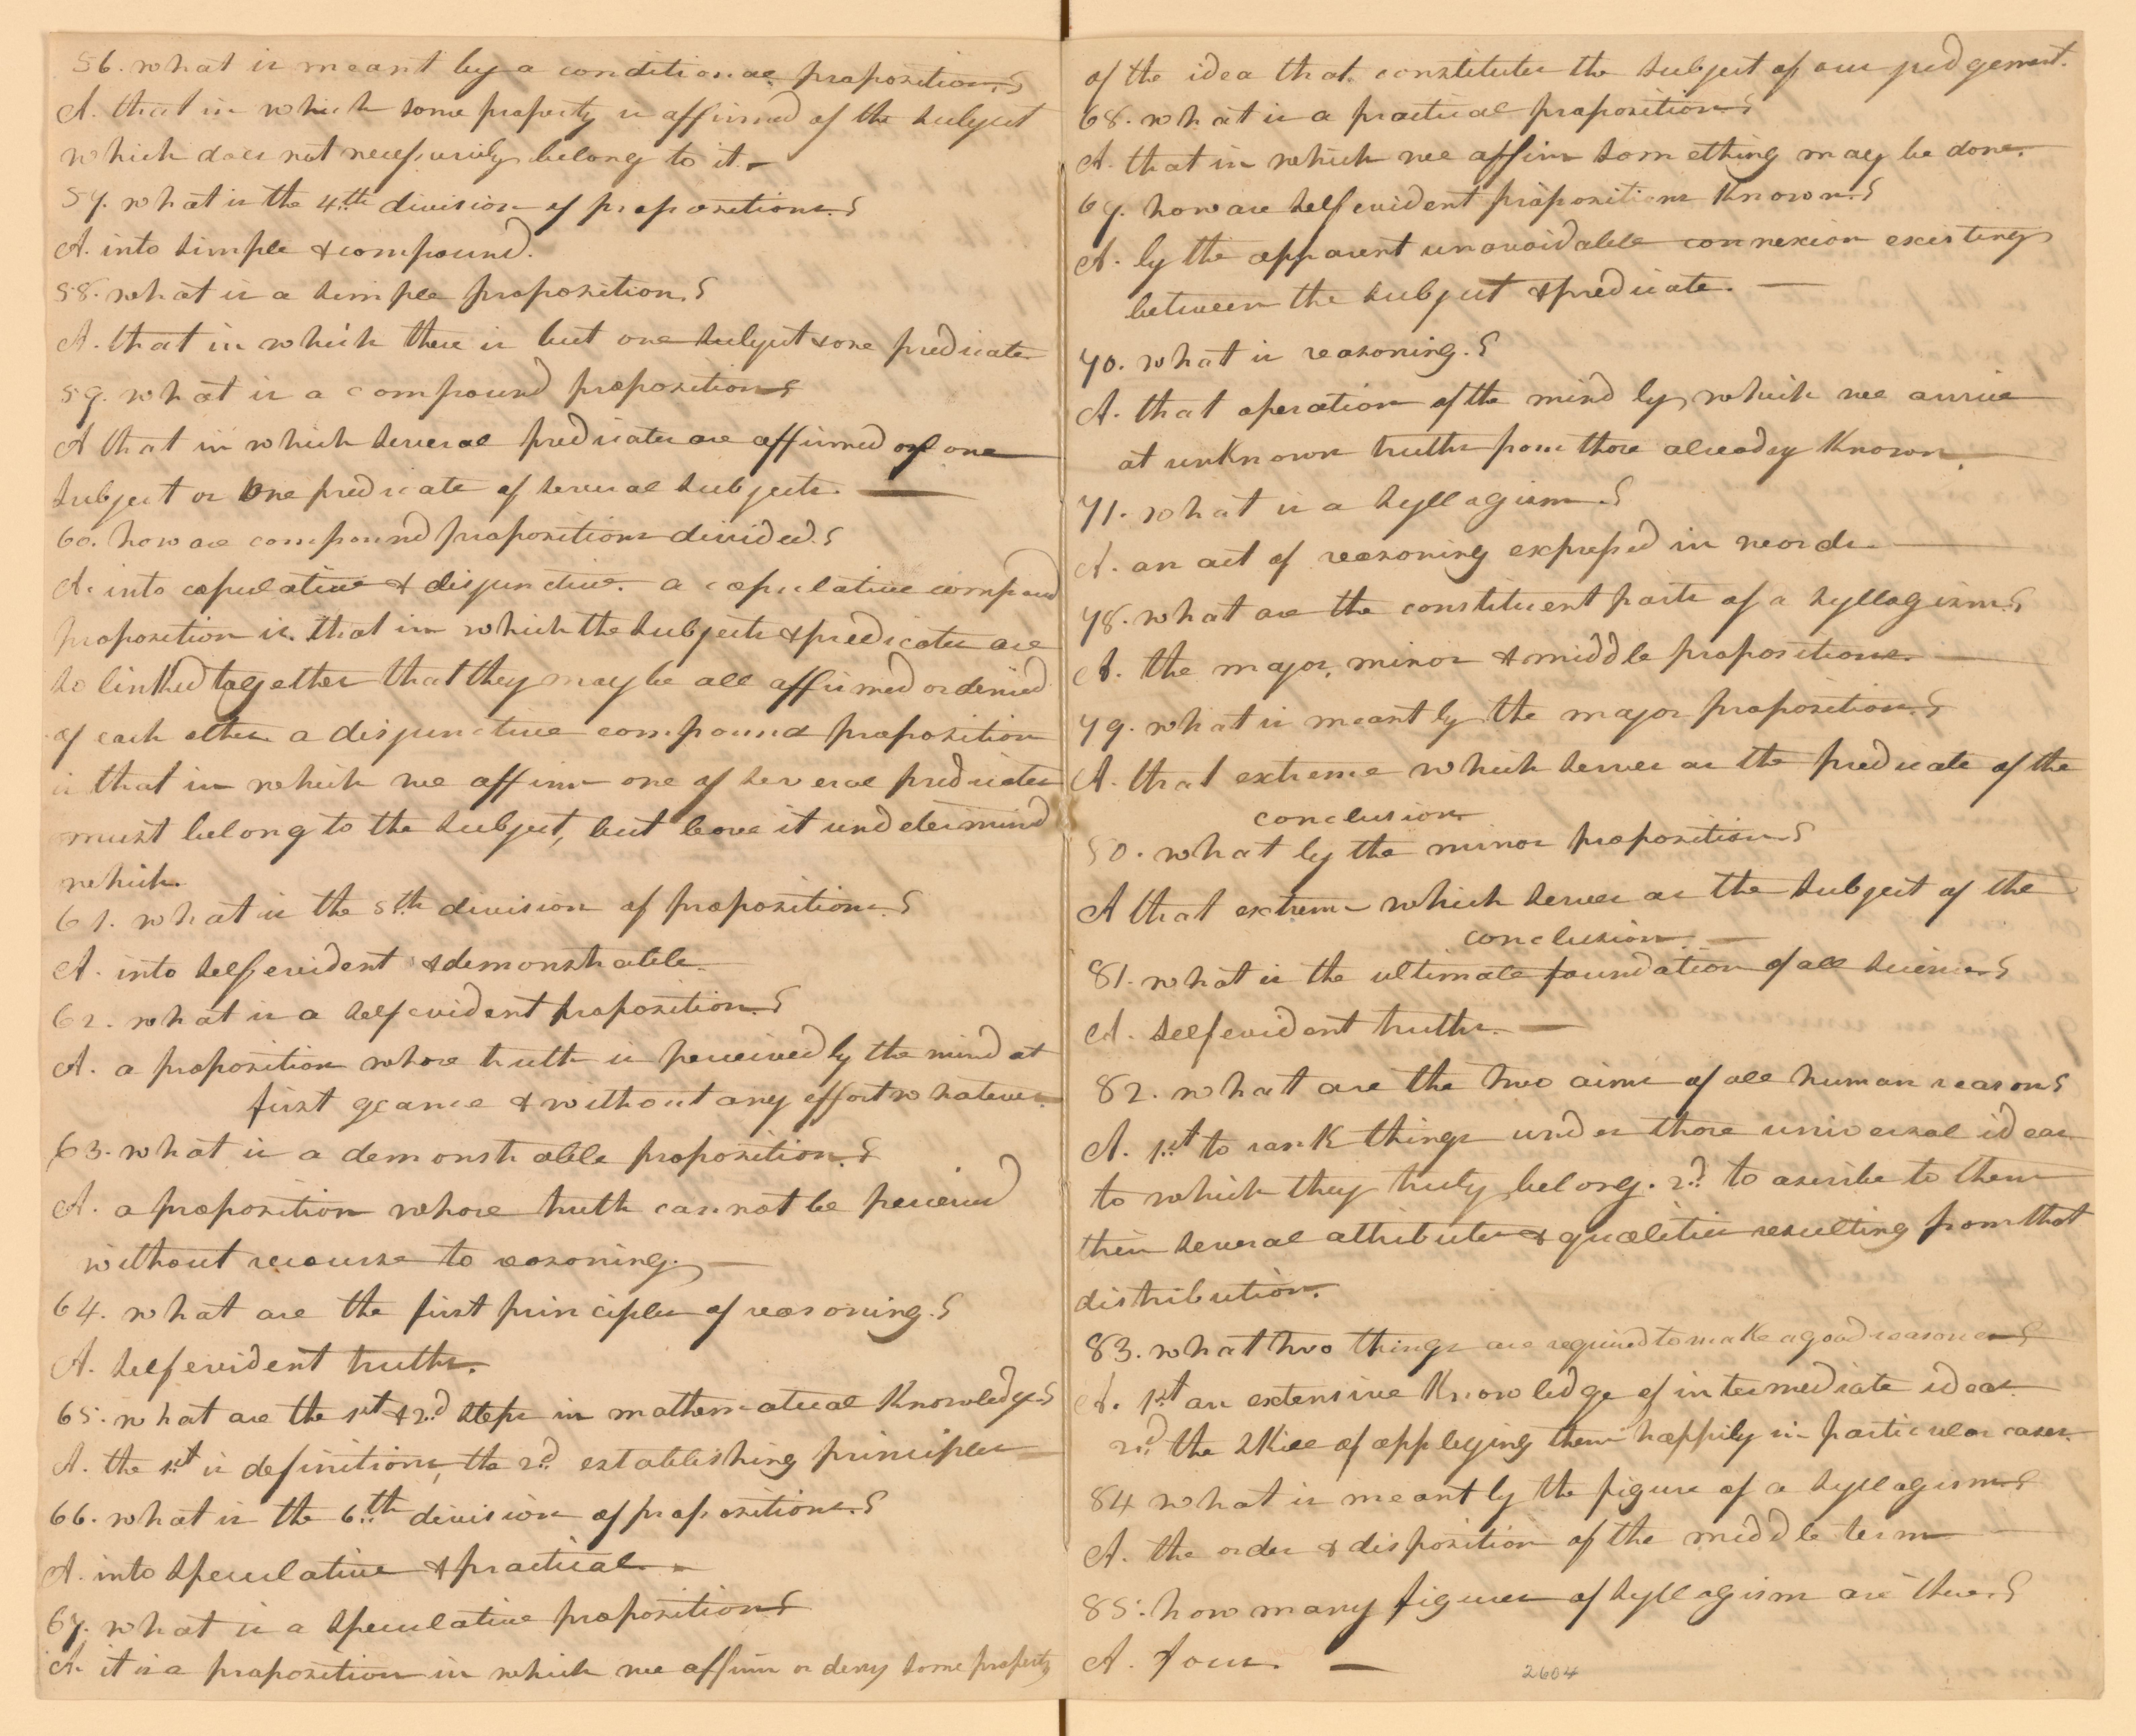 56. what is meant by a conditional proposition.?
A. that in which some property is affirmed of the subject
which does not necessarily belong to it. -
57. what is the 4th division of propositions.?
A. into simple & compound.
58. what is a simple proposition.?
A. that in which there is but one subject & one predicate
59. what is a compound proposition?
A that in which several predicates are affirmed of one
subject or one predicate of several subjects. —
60. how are compound propositions divided.?
A. into copulative & disjunctive. a copulative compound
proposition is. that in which the subjects & predicates are
so linked together that they may be all affirmed or denied
of each other a disjunctive compound proposition
is that in which we affirm one of several predicates
must belong to the subject, but leave it undetermind
which.
61. what is the 5th division of propositions.?
A. into self evident & demonstrable.
62. what is a self evident proposition.?
A. a proposition whose truth is perceived by the mind at
first glance & without any effort whatever.
63. what is a demonstrable proposition.?
A. a proposition whose truth cannot be perceived
without recourse to reasoning. —
64. what are the first principles of reasoning.?
A. self evident truths.
65. what are the 1st & 2d steps in mathematical Knowledge?
A. the 1st is definitions, the 2d establishing principles
66. what is the 6th division of propositions.?
A. into speculative & practical. -
67. what is a speculative proposition?
A. it is a proposition in which we affirm or deny some property
of the idea that constitutes the subject of our judgement.
68. what is a practical proposition?
A. that in which we affirm something may be done.
69. how are self evident propositions Known.?
A. by the apparent unavoidable connexion existing
between the subject & predicate. —
70. what is reasoning.?
A. that operation of the mind by which we arrive
at unKnown truths from those already Known.
71. what is a syllagism.?
A. an act of reasoning expressed in words.
78. what are the constituent parts of a syllagism.?
A. the major, minor & middle propositions. —
79. what is meant by the major proposition.?
A. that extreme which serves as the predicate of the
conclusion
80. what by the minor proposition?
A that extreme which serves as the subject of the
conclusion. —
81. what is the ultimate foundation of all science.?
A. self evident truths. —
82. what are the two aims of all human reason?
A. 1st to rank things under those universal ideas
to which they truly belong. 2d to ascribe to them
their several attributes & qualities resulting from that
distribution.
83. what two things are required to make a good reasoner?
A. 1st an extensive Knowledge of intermediate ideas.
2d the sKill of applying them happily in particular cases.
84 what is meant by the figure of a syllagism?
A. the order & disposition of the middle term
85. how many figures of syllagism are there.?
A. four. —
2604